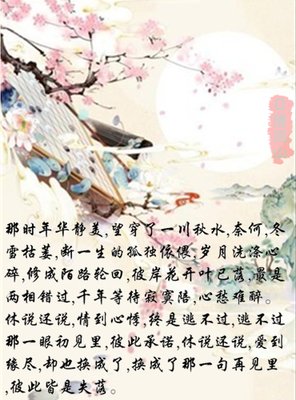 那时年华静美,望穿了一川秋水,奈何,冬
雪枯萎,断一生的孤独依偎,岁月洗涤心
碎,修成陌路轮回,彼岸花开叶已落,最是
两相错过,千年等待寂寞陪,心愁难醉。
休说还说,情到心悸,终是逃不过,逃不过
那一眼初见里,彼此承诺,休说还说,爱到
缘尽,却也换成了,换成了那一句再见里
,彼此皆是失落。